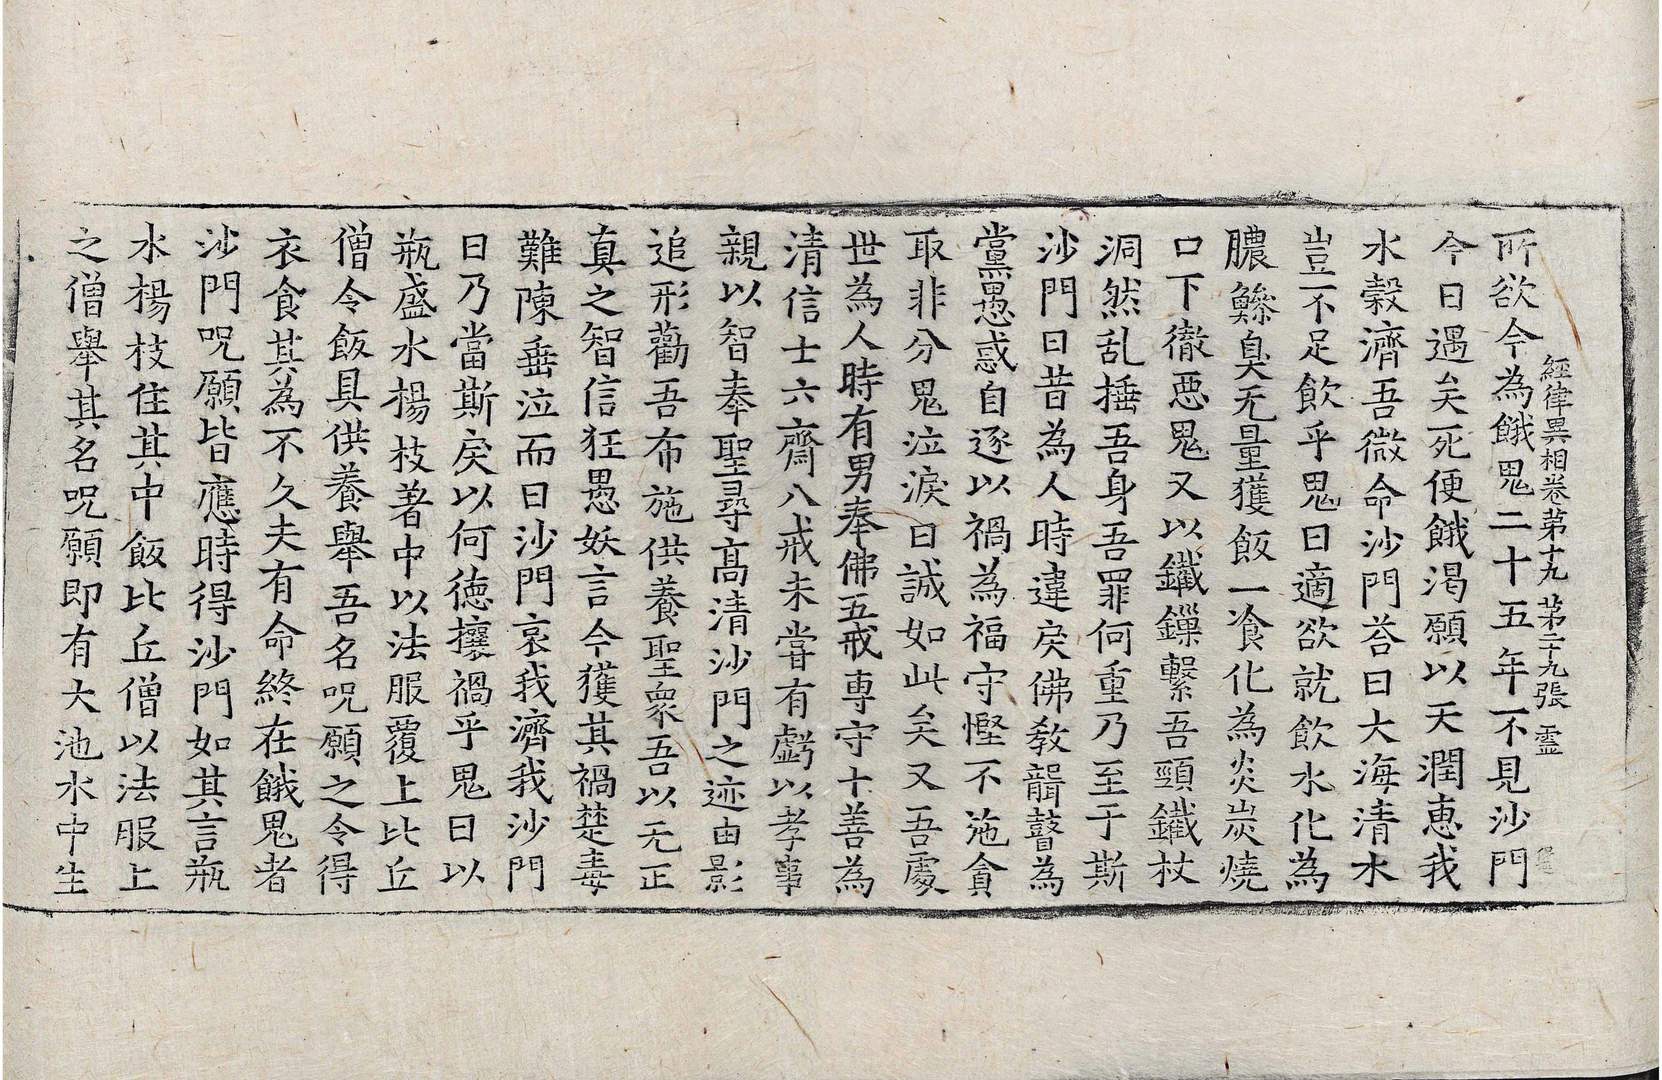 經律異相卷第十九 第二十九張 靈
所欲今為餓鬼二十五年不見沙門
今日遇矣死便餓渴願以天潤惠我
水糓濟吾微命沙門荅曰大海清水
豈不足飲乎鬼曰適欲就飲水化為
膿鯵臭无量獲飯一飡化為炎炭燒
口下徹惡鬼又以鐵鏁繫吾頸鐵杖
洞然乱捶吾身吾罪何重乃至于斯
沙門曰昔為人時違戾佛教聾瞽為
黨愚惑自逐以禍為福守慳不施貪
取非分鬼泣淚曰誠如此矣又吾處
世為人時有男奉佛五戒專守十善為
清信士六齋八戒未甞有虧以孝事
親以智奉聖尋高清沙門之迹由影
追形勸吾布施供養聖衆吾以无正
真之智信狂愚妖言今獲其禍楚毒
難陳垂泣而曰沙門哀我濟我沙門
曰乃當斯戾以何徳攘禍乎鬼曰以
瓶盛水楊枝著中以法服覆上比丘
僧令飯具供養舉吾名呪願之令得
衣食其為不久夫有命終在餓鬼者
沙門呪願皆應時得沙門如其言瓶
水楊枝住其中飯比丘僧以法服上
之僧舉其名呪願即有大池水中生